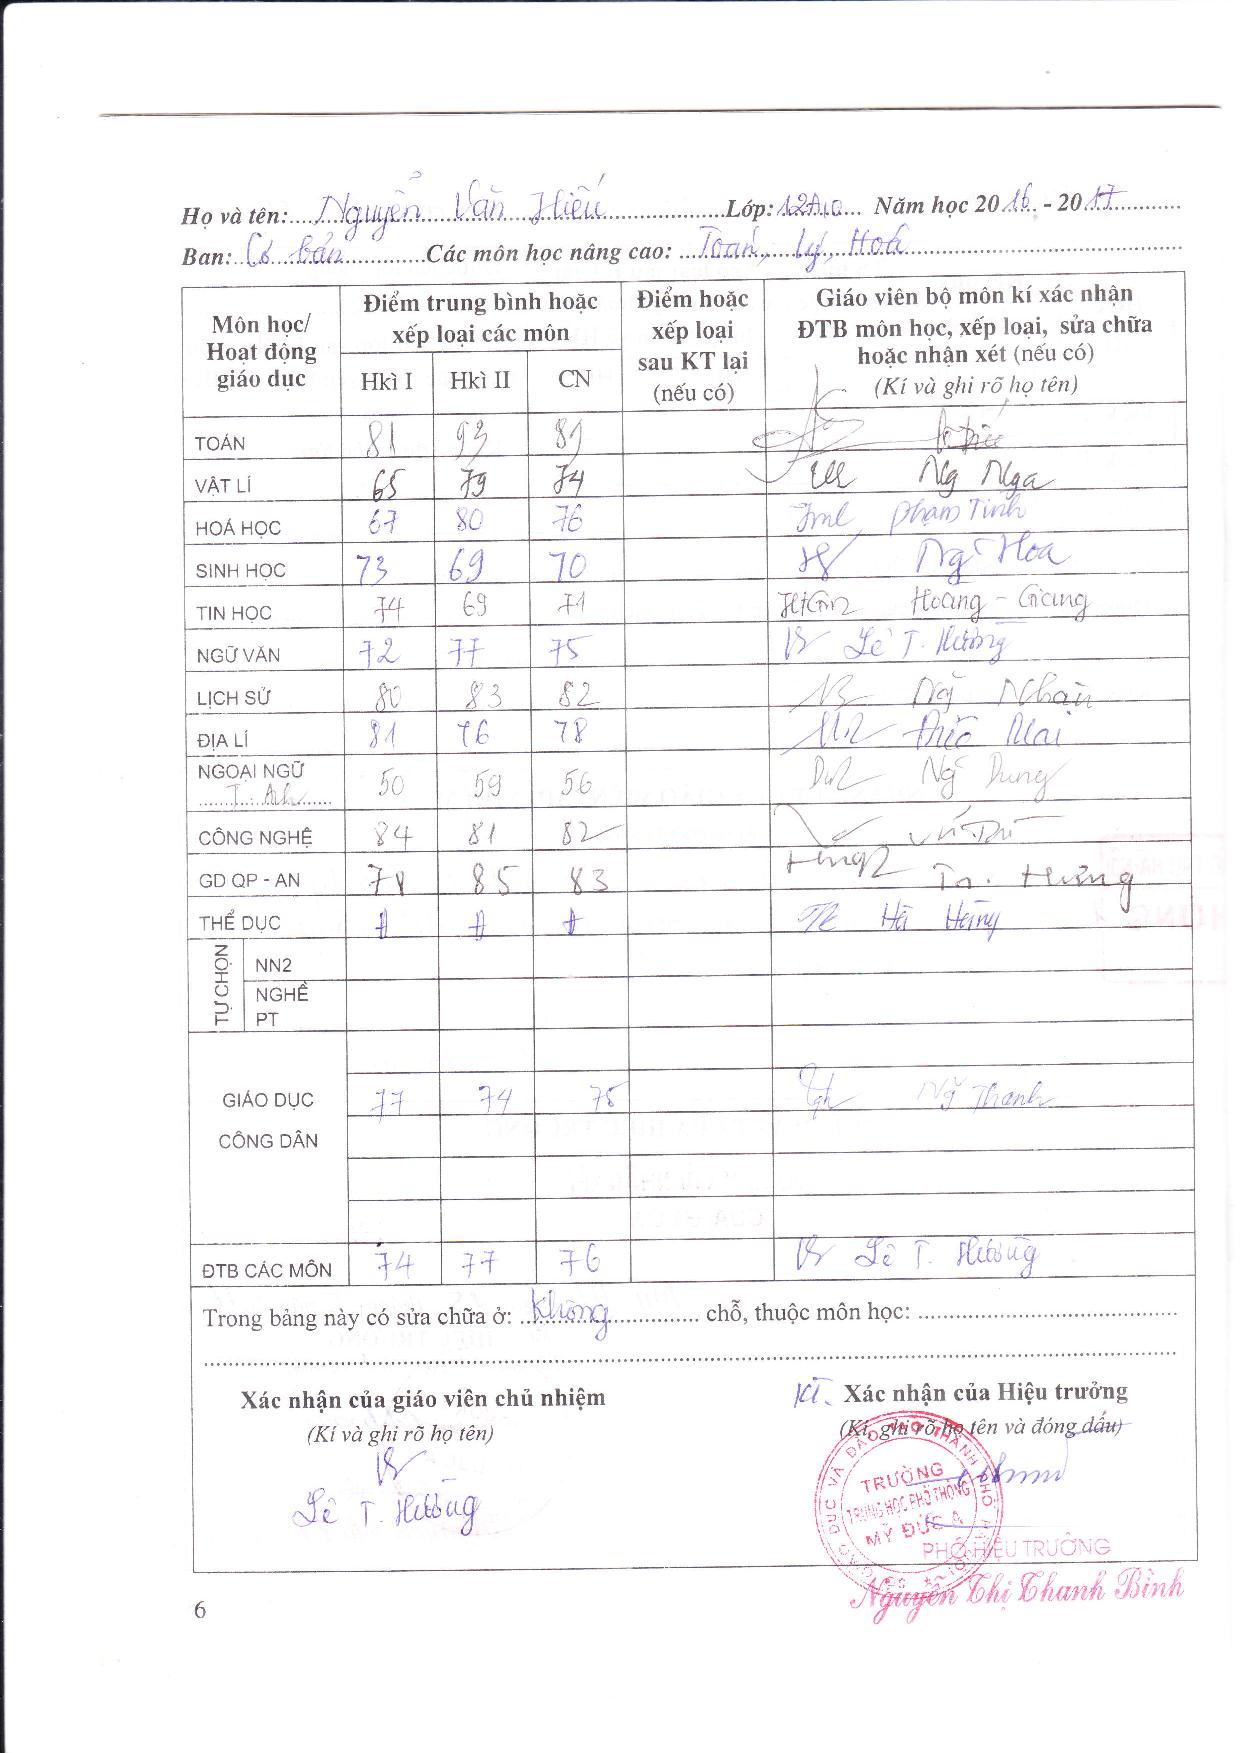 Họ và tên: Nguyễn Văn Hiếu Lớp: 12A10 Năm học 2016 - 2017
Ban: Cơ bản Các môn học nâng cao: Toán, Lý, Hoá
Môn học/ Hoạt động giáo dục
Điểm trung bình hoặc xếp loại các môn
Điểm hoặc xếp loại sau KT lại (nếu có)
Giáo viên bộ môn kí xác nhận ĐTB môn học, xếp loại, sửa chữa hoặc nhận xét (nếu có)
(Kí và ghi rõ họ tên)
Hkì I Hkì II CN
TOÁN 81 93 89
VẬT LÍ 65 79 74 Ng Nga
HOÁ HỌC 67 80 76 Phạm Tính
SINH HỌC 73 69 70 Ng Hoa
TIN HỌC 74 69 71 Hoàng - Giang
NGỮ VĂN 72 77 75 Lê T. Hường
LỊCH SỬ 80 83 82 Ng Nhàn
ĐỊA LÍ 81 76 78 Mai
NGOẠI NGỮ
T. Anh 50 59 56 Ng Dung
CÔNG NGHỆ 84 81 82
GD QP - AN 78 85 83 Tr. Hưng
THỂ DỤC Đ Đ Đ Hà Hưng
TỰ CHỌN
NN2
NGHỀ
PT
GIÁO DỤC
77 74 75 Ng Thanh
CÔNG DÂN
ĐTB CÁC MÔN 74 77 76 Lê T. Hường
Trong bảng này có sửa chữa ở: Không chỗ, thuộc môn học:
Xác nhận của giáo viên chủ nhiệm
(Kí và ghi rõ họ tên)
Lê T. Hường
KT. Xác nhận của Hiệu trưởng
(Kí, ghi rõ họ tên và đóng dấu)
TRƯỜNG
TRUNG HỌC PHỔ THÔNG
MỸ ĐỨC A
PHÓ HIỆU TRƯỞNG
Nguyễn Thị Thanh Bình
6